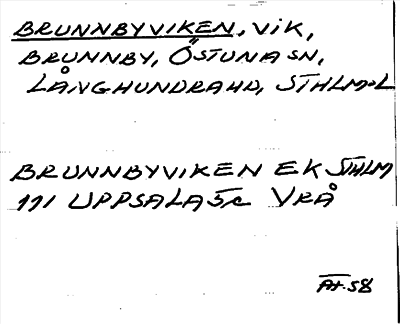 BRUNNBYVIKEN, VIK,
BRUNNBY, ÖSTUNA SN,
LÅNGHUNDRA HD, STHLMS L
BRUNNBYVIKEN EK STHLM
111 UPPSALA SE VRÅ
AH. 58